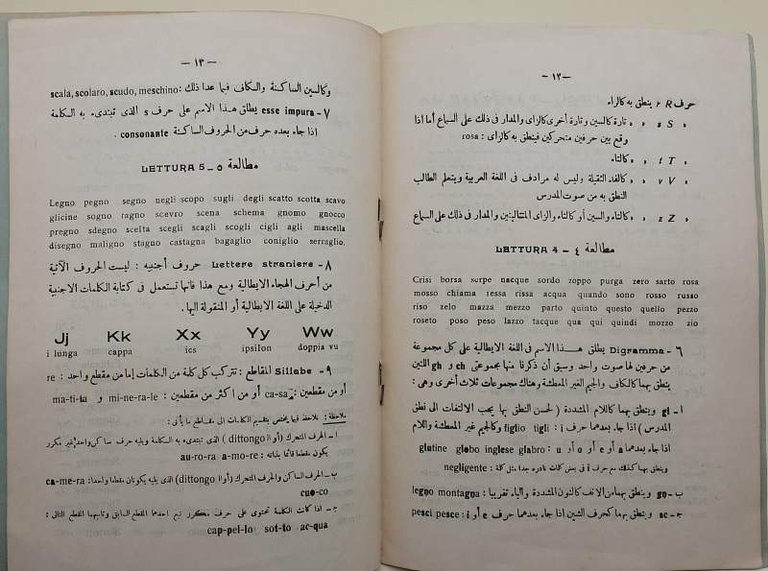 — ١٢ —
حرف R ر ينطق به كالراء
» S س » تارة كالسين وتارة أخرى كالزاى والمدار فى ذلك على السماع أما اذا
وقع بين حرفين متحركين فينطق به كالزاى : rosa
» T t » كالتاء
» V v » كالفاء الثقيلة وليس له مرادف فى اللغة العربية ويتعلم الطالب
النطق به من صوت المدرس
» Z z » كالتاء والسين أو كالتاء والزاى المتتاليتين والمدار فى ذلك على السماع
LETTURA 4 – ٤ مطالعة
Crisi borsa serpe nacque sordo zoppo purga zero sarto rosa
mosso chiama ressa rissa acqua quando sono rosso russo
riso zelo mazza mezzo parto quinto questo quello pezzo
roseto poso peso lazzo tacque qua qui quindi mozzo zio
٦ – Digramma يطلق هــذا الاسم فى اللغة الايطالية على كل مجموعة
من حرفين لها صوت واحد وسبق أن ذكرنا منها مجموعتى ch و gh اللتين
ينطق بهما كالكاف والجيم الغير المعطشة وهناك مجموعات ثلاث أخرى وهى :
ا – gl وينطق بهما كاللام المشددة ( لحسن النطق بها يجب الالتفات الى نطق
المدرس ) اذا جاء بعدهما حرف i : figlio tigli وكالجيم غير المعطشة واللام
اذا جاء بعدهما a أو e أو o أو u : glutine globo inglese glabro
وينطق بهما كذلك مع حرف i فى بعض كلمات نادرة جدا مثل كلمة : negligente
ب – gn وينطق بهما من الانف كالنون المشددة والياء تقريبا : legno montagna
ج – sc وينطق بهما كحرف الشين اذا جاء بعدهما حرف e أو i : pesci pesce
— ١٣ —
وكالسين الساكنة والكاف فيما عدا ذلك : scala, scolaro, scudo, meschino
٧ – esse impura يطلق هــذا الاسم على حرف s الذى تبتدىء به الكلمة
اذا جاء بعده حرف من الحروف الساكنة consonante .
LETTURA 5 – ٥ مطالعة
Legno pegno segno negli scopo sugli degli scatto scotta scavo
glicine sogno ragno scevro scena schema gnomo gnocco
pregno sdegno scelta scegli scagli scogli cigli agli mascella
disegno maligno stagno castagna bagaglio coniglio serraglio.
٨ – Lettere straniere حروف أجنبيه : ليست الحروف الآتية
من أحرف الهجاء الايطالية و مع هذا فانها تستعمل فى كتابة الكلمات الاجنبية
الدخيلة على اللغة الايطالية أو المنقولة اليها .
Jj Kk Xx Yy Ww
i lunga cappa ics ipsilon doppia vu
٩ – Sillabe المقاطع : تتركب كل كلمة من الكلمات إما من مقطع واحد : re
أو من مقطعين : ca-sa أو من اكثر من مقطعين : mi-ne-ra-le و ma-ti-ta
ملاحظة : تلاحظ فيما يختص بتقسيم الكلمات الى مقاطع ما يأتى :
ا – الحرف المتحرك (أو الـ dittongo) الذى تبتدىء به الكلمة ويليه حرف ساكن واحد غير مكرر
يكون مقطعا قائما بذاته : au-ro-ra a-mo-re
ب – الحرف الساكن والحرف المتحرك (أو الـ dittongo) الذى يليه يكونان مقطعا واحدا: ca-me-ra
cuo-co
ج – اذا كانت الكلمة تحتوى على حرف مكرر تبع احدهما المقطع السابق وثانيهما المقطع التالى :
cap-pel-lo sot-to ac-qua